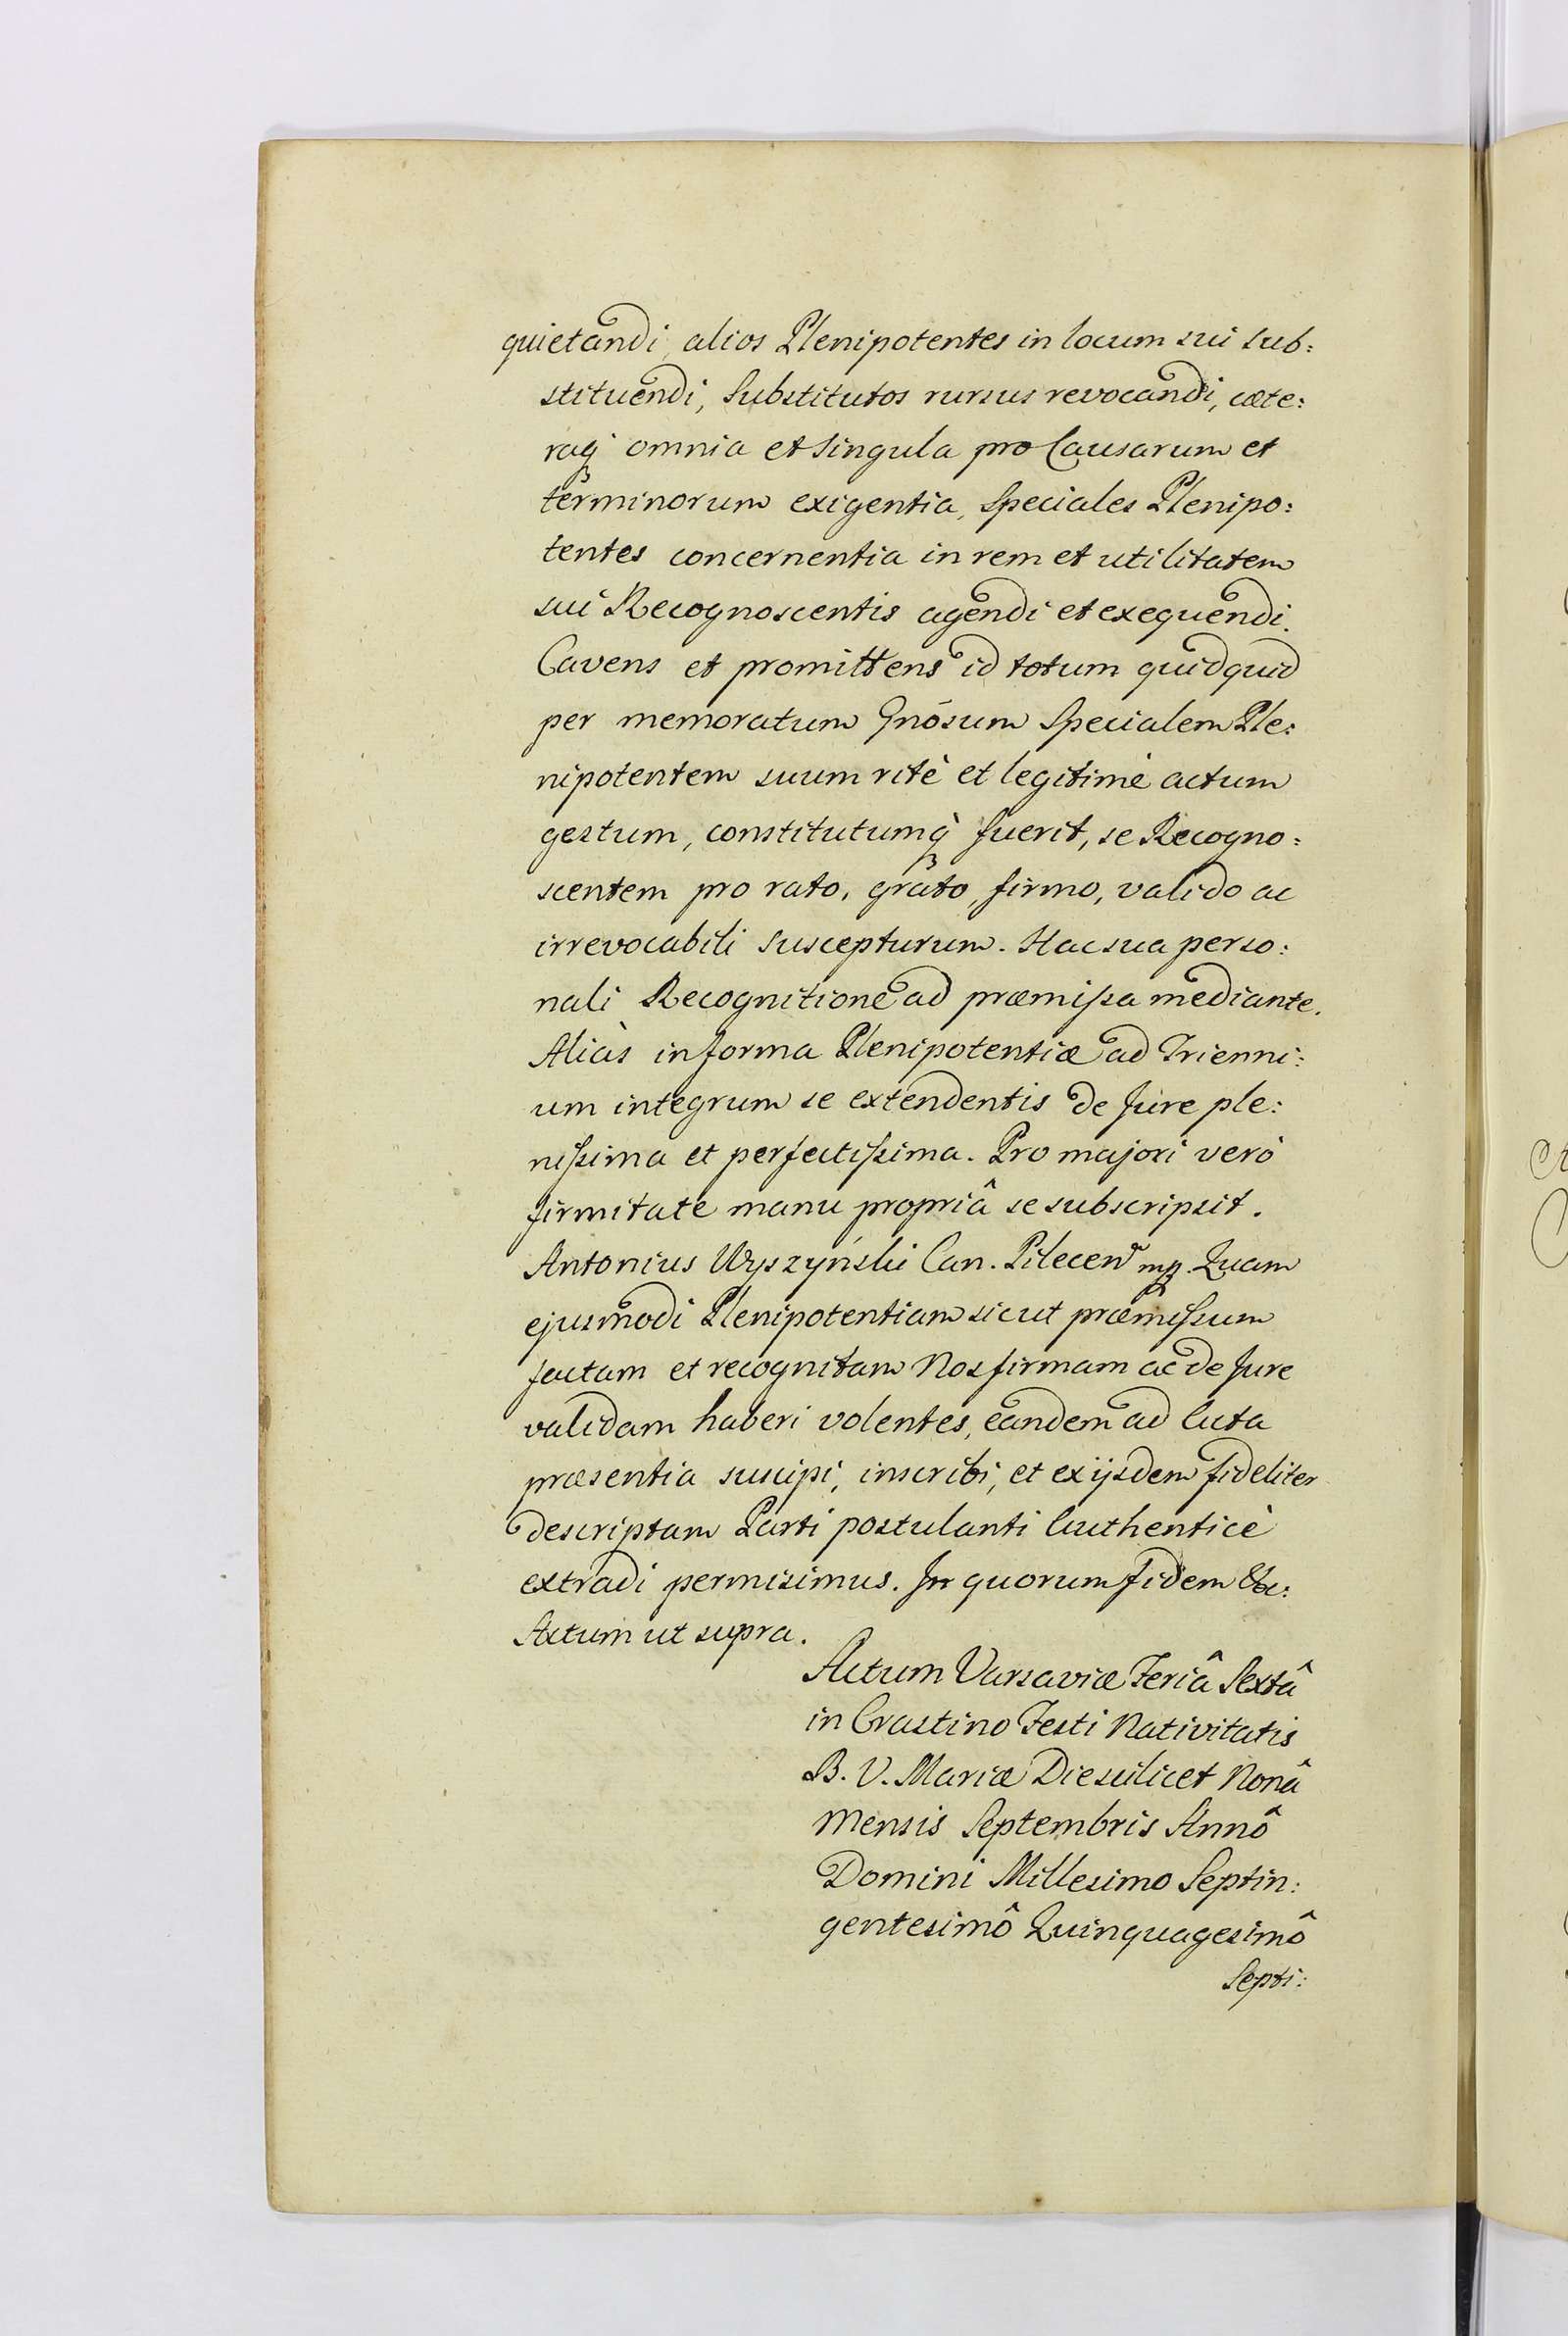 quietandi, alios Plenipotentes in locum sui sub:
stituendi, Substitutos rursus revocandi, cæte:
raq₃ omnia et singula pro Causarum et
terminorum exigentia, Speciales Plenipo:
tentes concernentia in rem et utilitatem
sui Recognoscentis agendi et exequendi.
Cavens et promittens id totum quidquid
per memoratum Gnōsum Specialem Ple:
nipotentem suum ritè et legitimè actum
gestum, constitutumq₃ fuerit, se Recogno:
scentem pro rato, grato, firmo, valido ac
irrevocabili suscepturum. Hac sua perso:
nali Recognitione ad præmissa mediante.
Aliàs in forma Plenipotentiæ ad Trienni:
um integrum se extendentis de Jure ple:
nissima et perfectissima. Pro majori verò
firmitate manu propriâ se subscripsit.
Antonius Wyszyński Can. Pilecen mp. Quam
ejusmodi Plenipotentiam sicut præmissum
factam et recognitam Nos firmam ac de Jure
validam haberi volentes, eandem ad Acta
præsentia suscipi, inscribi, et ex ijsdem fideliter
descriptam Parti postulanti Authenticè
extradi permisimus. In quorum fidem &c:
Actum ut supra.
Actum Varsaviæ Feriâ Sextâ
in Crastino Festi Nativitatis
B. V. Mariæ Die scilicet Nonâ
Mensis Septembris Annô
Domini Millesimo Septin:
gentesimô Quinquagesimô
Septi: